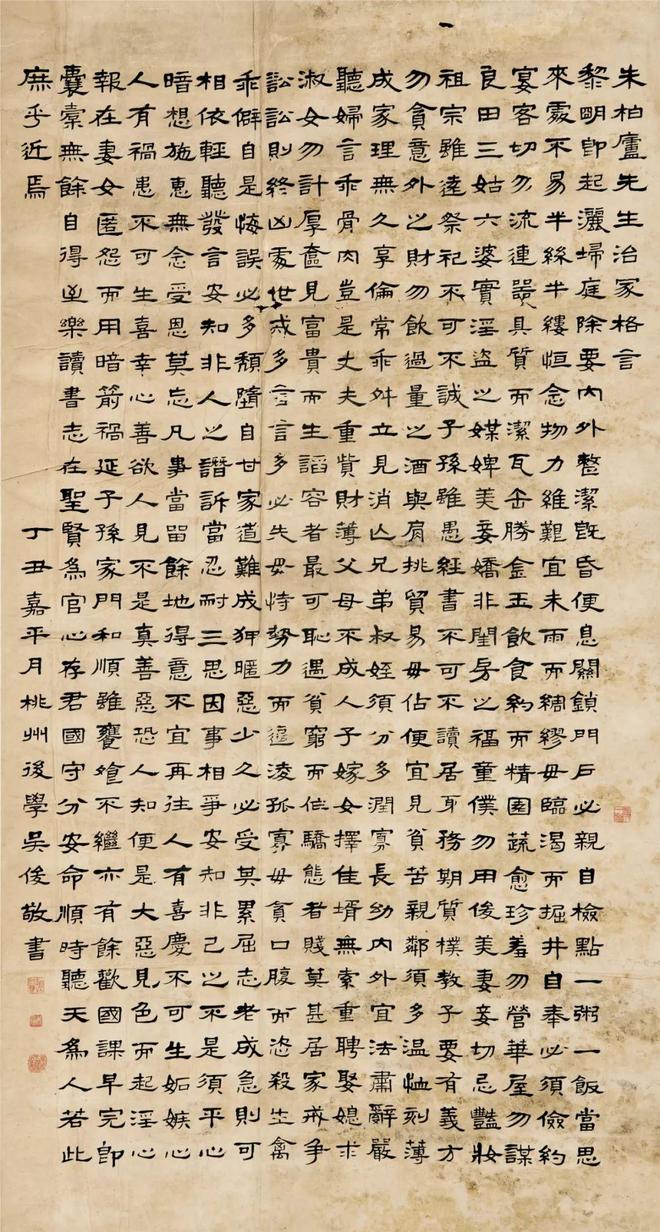 朱柏廬先生治家格言
黎明即起灑掃庭除要內外整潔旣昏便息關鎖門戶必親自檢點一粥一飯當思
來處不易半絲半縷恒念物力維艱宜未雨而綢繆毋臨渴而掘井自奉必須儉約
宴客切勿流連器具質而潔瓦缶勝金玉飲食約而精園蔬愈珍羞勿營華屋勿謀
良田三姑六婆實淫盜之媒婢美妾嬌非閨房之福童僕勿用俊美妻妾切忌豔妝
祖宗雖遠祭祀不可不誠子孫雖愚經書不可不讀居身務期質樸教子要有義方
勿貪意外之財勿飲過量之酒與肩挑貿易毋佔便宜見貧苦親鄰須多溫恤刻薄
成家理無久享倫常乖舛立見消亾兄弟叔姪須分多潤寡長幼內外宜法肅辭嚴
聽婦言乖骨肉豈是丈夫重貲財薄父母不成人子嫁女擇佳壻無索重聘娶媳求
淑女勿計厚奩見富貴而生謟容者最可恥遇貧窮而作驕態者賤莫甚居家戒爭
訟訟則終凶處世戒多言言多必失毋恃勢力而逼淩孤寡毋貪口腹而恣殺生禽
乖僻自是悔誤必多頹隋自甘家道難成狎暱惡少久必受其累屈志老成急則可
相依輕聽發言安知非人之譖訴當忍耐三思因事相爭安知非己之不是須平心
暗想施惠無念受恩莫忘凡事當留餘地得意不宜再往人有喜慶不可生妬嫉心
人有禍患不可生喜幸心善欲人見不是真善惡恐人知便是大惡見色而起淫心
報在妻女匿怨而用暗箭禍延子孫家門和順雖饔飧不繼亦有餘歡國課早完即
囊橐無餘自得至樂讀書志在聖賢為官心存君國守分安命順時聽天為人若此
庶乎近焉
丁丑嘉平月桃州後學吳俊敬書